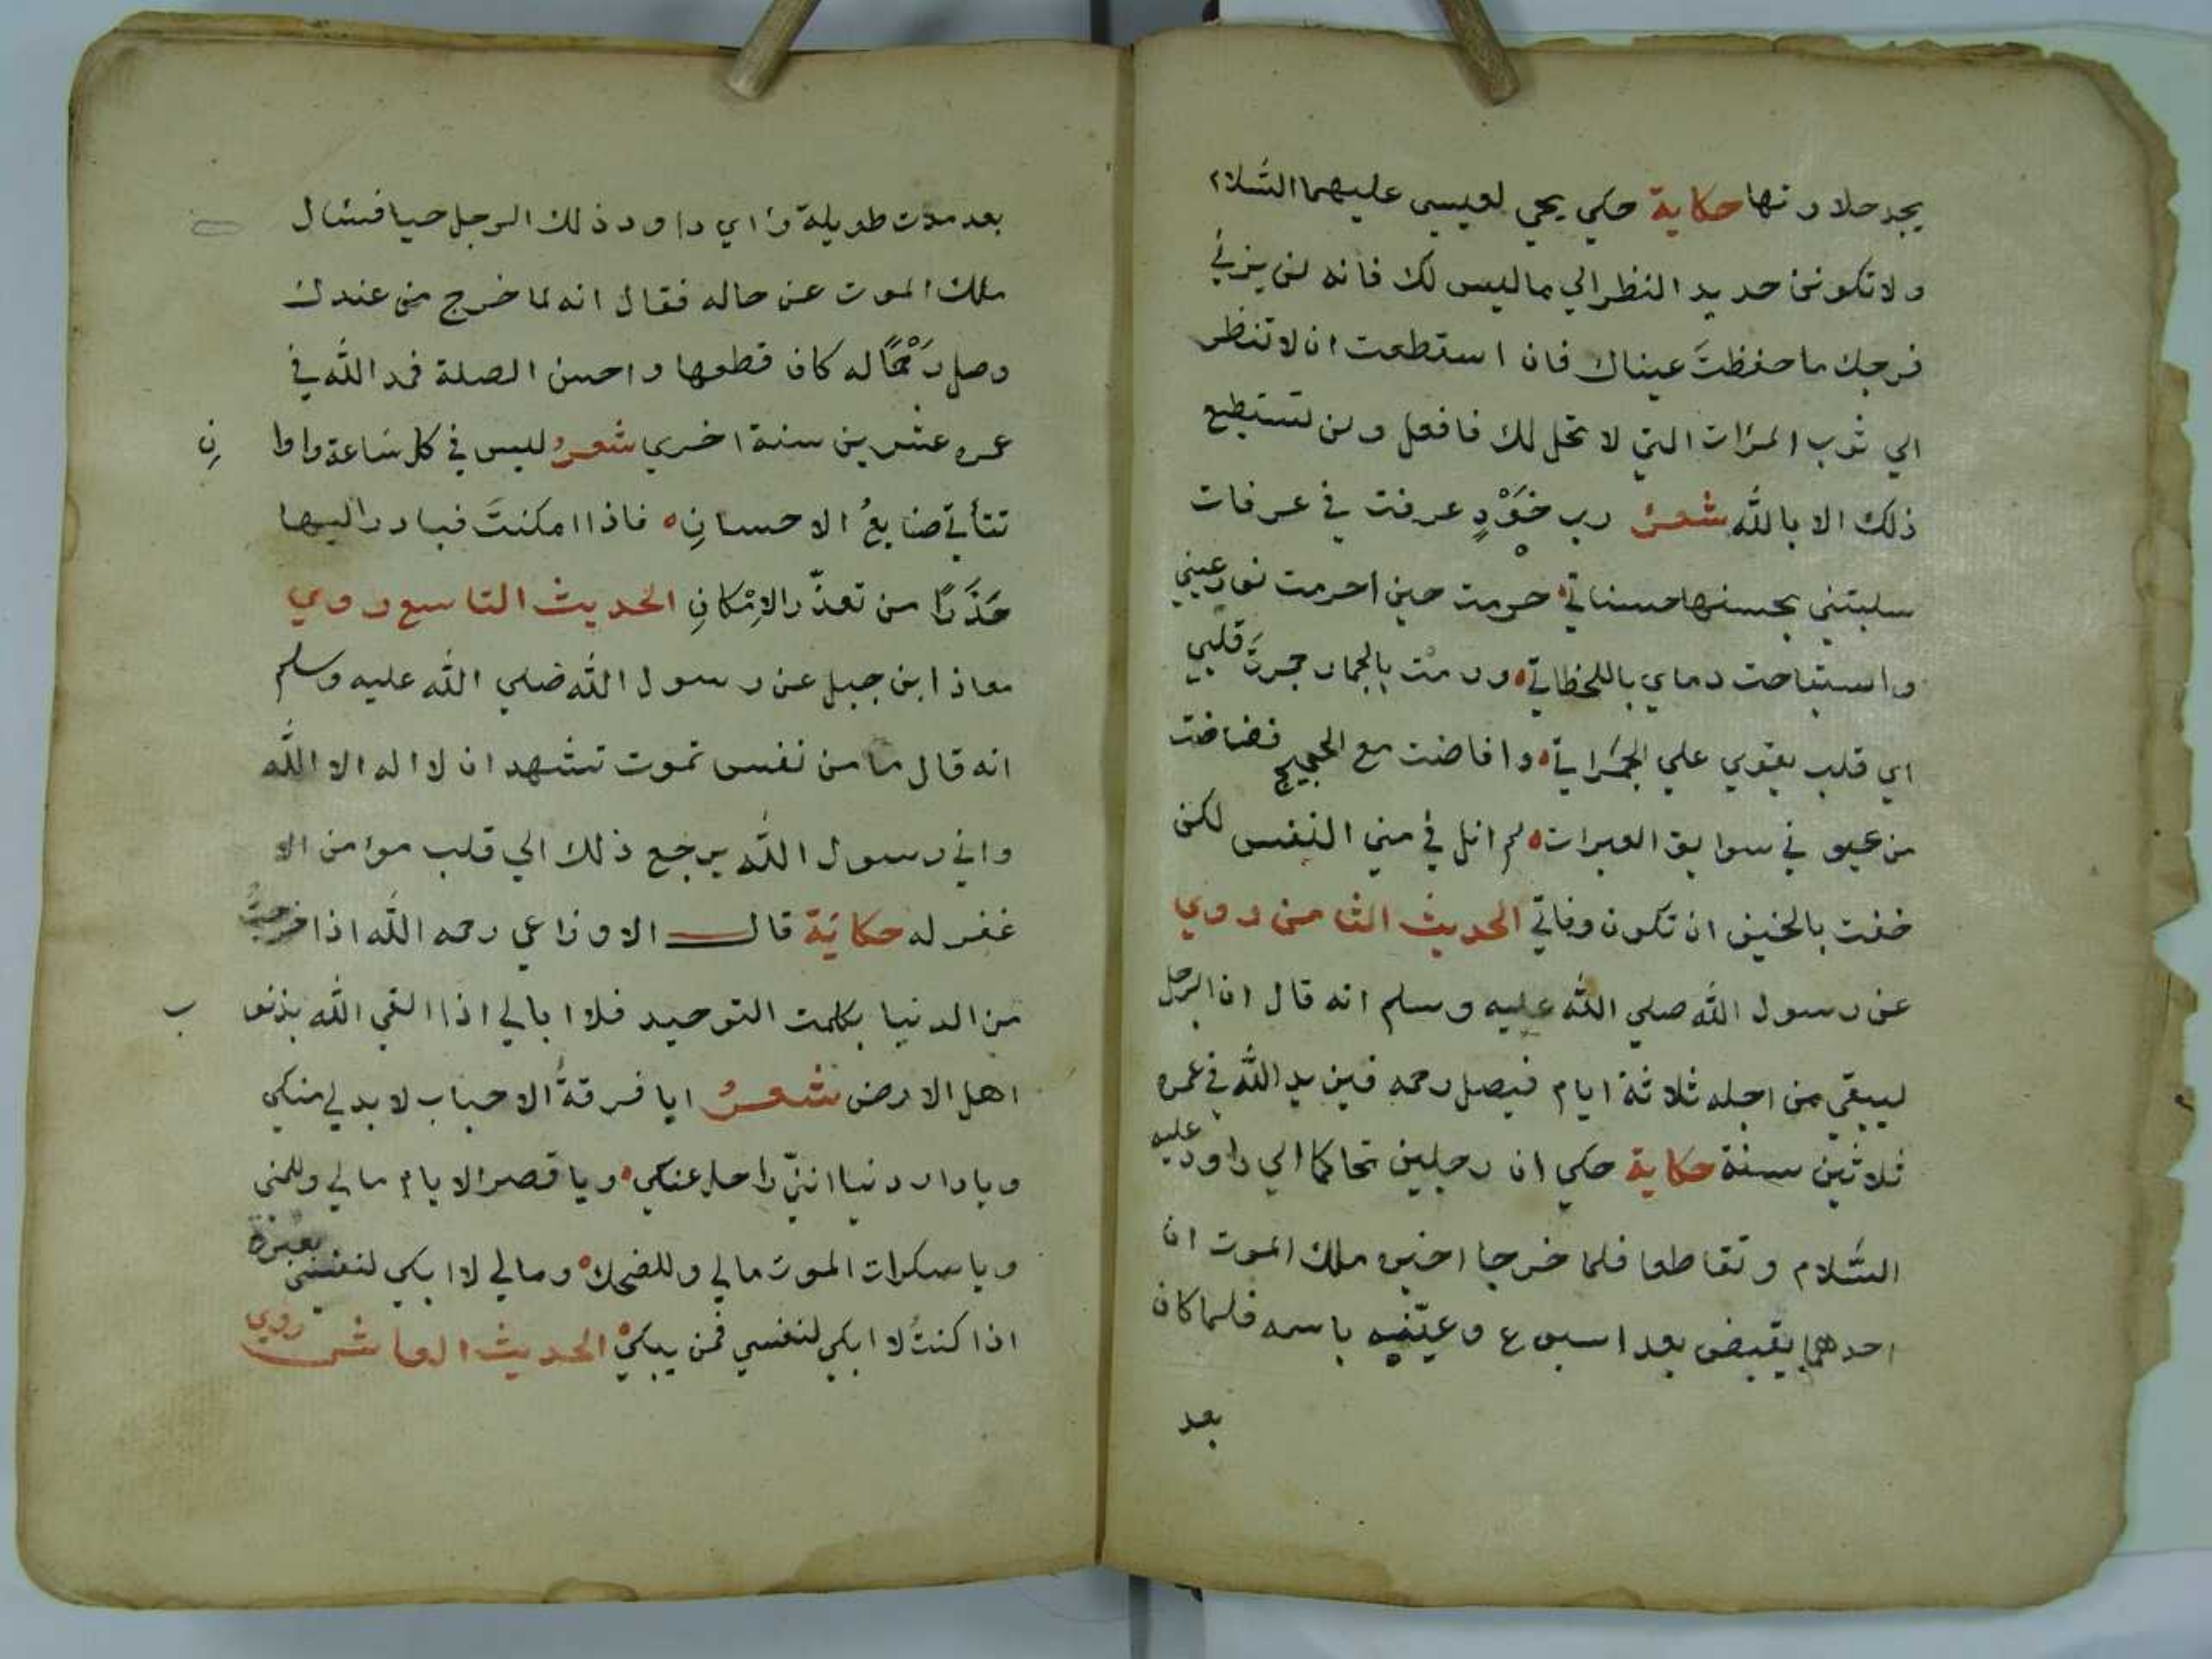 يجد حلاوتها حكاية حكي يحي لعيسي عليهما السلام
ولا تكونن حديد النظر الي ما ليس لك فانه لن يزني
فرجك ما حفظتَ عيناك فان استطعت ان لا تنظر
الي ثوب المرات التي لا تحل لك فافعل ولن تستطيع
ذلك الا بالله شعر رب خَوْدٍ عرفت في عرفات
سلبتني بحسنها حسناتي حرمت حين احرمت نور عيني
واستباحت دماي باللحظاتي ورمت بالجمار جمرت قلبي
اي قلب يقوي علي الجمراتي وافاضت مع الحجيج ففاضت
من عيو ني سوابق العبرات لم انل في مني النفس لكن
خفت بالخيف ان تكون وفاتي الحديث الثامن روي
عن رسول الله صلي الله عليه وسلم انه قال ان الرجل
ليبقي من اجله ثلاثة ايام فيصل رحمه فيزيد الله في عمره
ثلاثين سنة حكاية حكي ان رجلين تحاكما الي داود عليه
السلام وتقاطعا فلما خرجا اخبره ملك الموت ان
احدهما يقبض بعد اسبوع وعيّنه باسمه فلما كان
بعد
بعد مدت طويلة رٱي داود ذلك الرجل حيا فسٱل
ملك الموت عن حاله فقال انه لما خرج من عندك
وصل رَحْمًا له كان قطعها واحسن الصلة فمد الله في
عمره عشرين سنة اخري شعر ليس في كل ساعة واوا نِ
تتأتي صنايعُ الاحسانِ فاذا امكنتَ فبادر اليها
حَذَرًا من تعذّر الاِمْكانِ الحديث التاسع روي
معاذ ابن جبل عن رسول الله صلي الله عليه وسلم
انه قال ما من نفس تموت تشهد ان لا اله الا الله
واني رسول الله يرجع ذلك الي قلب موٴمن الا
غفر له حكاية قال الاوزاعي رحمه الله اذا خرجتُ
من الدنيا بكلمت التوحيد فلا ابالي اذا القي الله بذنو ب
اهل الارض شعر ايا فرقةُ الاحباب لا بد لي منكي
ويا دار دنيا انني راحل عنكي ويا قصر الايام مالي وللمني
ويا سكرات الموت مالي وللضحك ومالي لا ابكي لنفسي بعبرة
اذا كنتُ لا ابكي لنفسي فمن يبكي الحديث العاشر روي